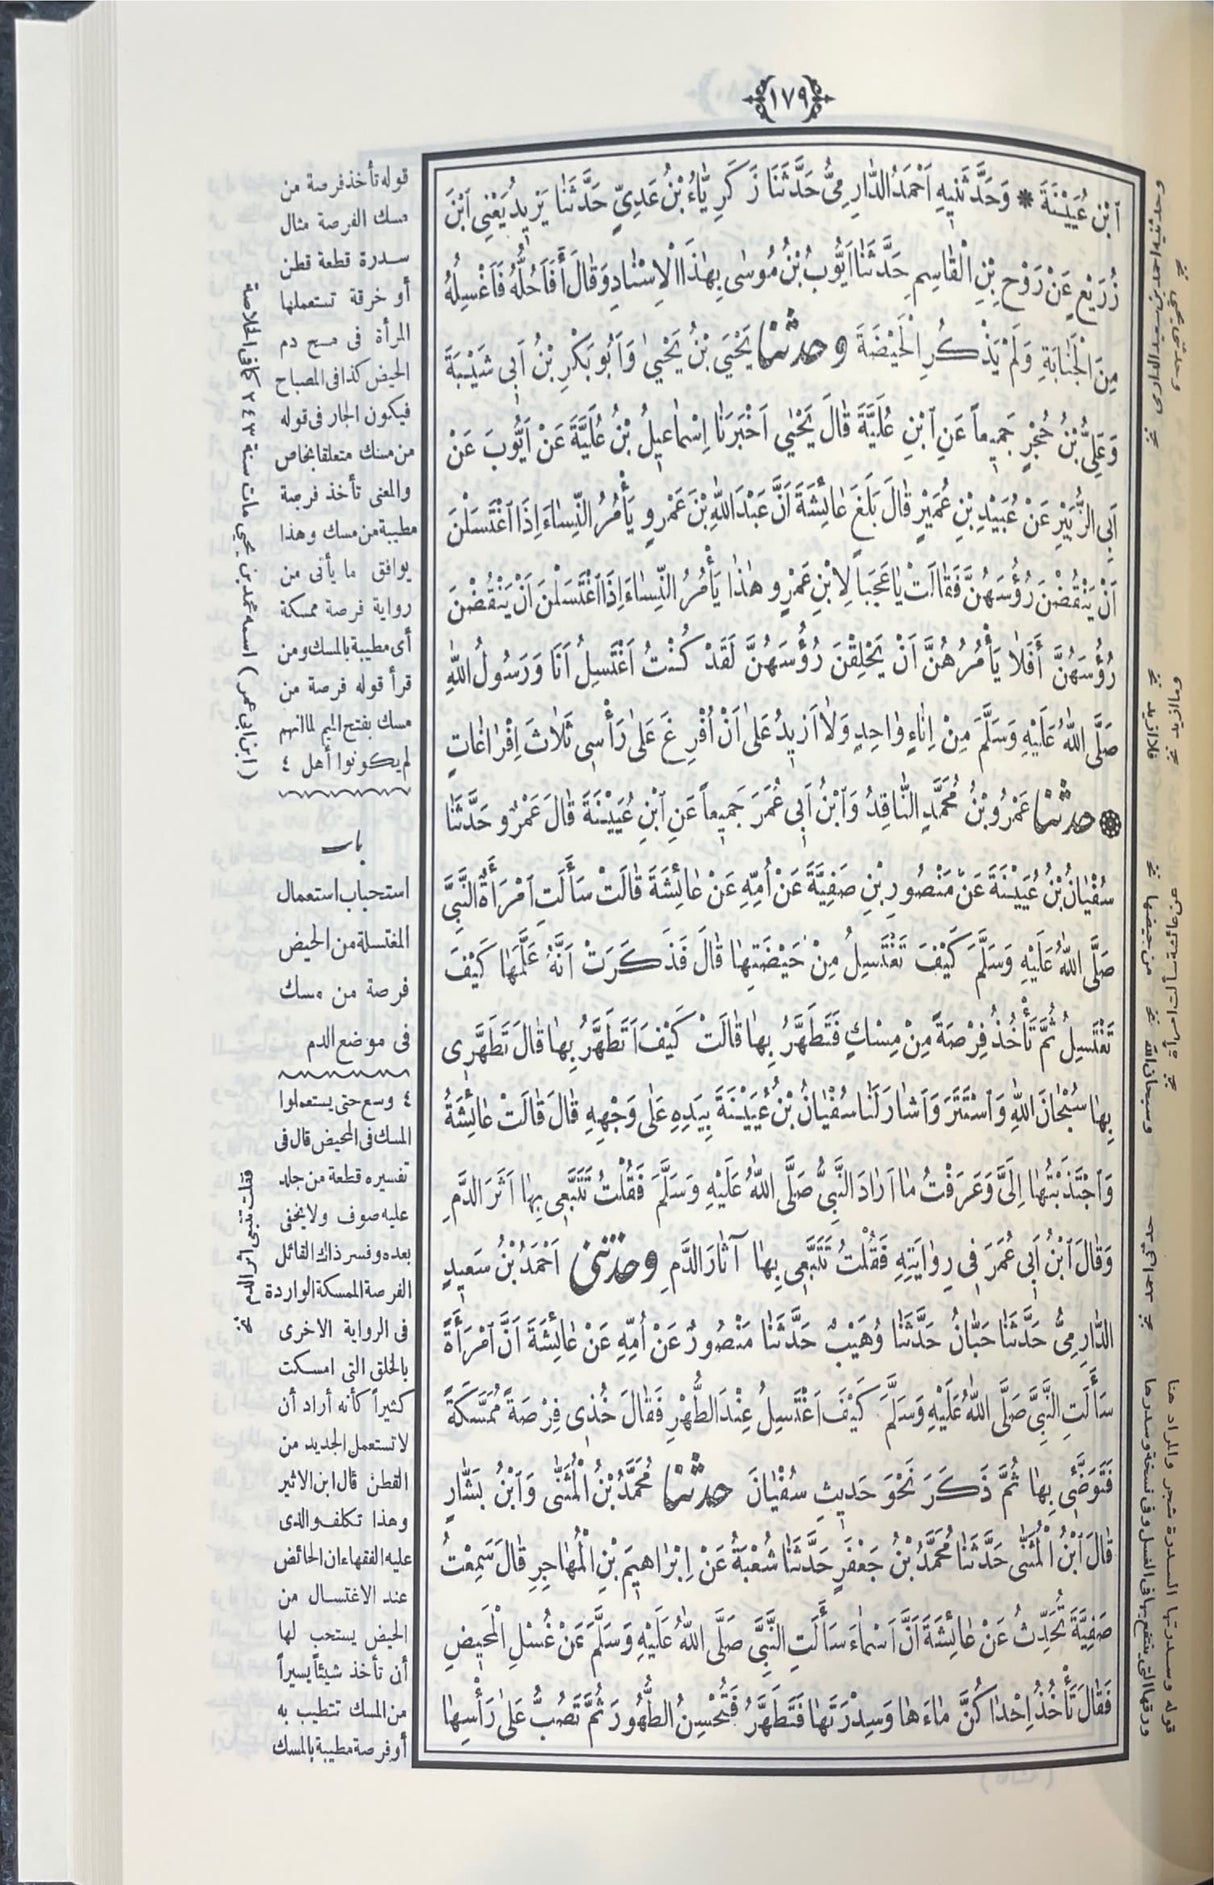 ١٧٩
اَبْنِ عُيَيْنَةَ * وَحَدَّثَنِيهِ اَحْمَدُ الدَّارِمِىُّ حَدَّثَنَا زَكَرِيَّاءُ بْنُ عَدِيٍّ حَدَّثَنَا يَزِيدُ يَعْنِي اَبْنَ
زُرَيْعٍ عَنْ رَوْحِ بْنِ الْقَاسِمِ حَدَّثَنَا اَيُّوبُ بْنُ مُوسٰى بِهٰذَا الْاِسْنَادِ وَقَالَ أَفَاَحُلُّهُ فَاَغْسِلُهُ
مِنَ الْجَنَابَةِ وَلَمْ يَذْكُرِ الْحَيْضَةَ وحدثنا يَحْيَى بْنُ يَحْيٰى وَاَبُو بَكْرِ بْنُ اَبِى شَيْبَةَ
وَعَلِىُّ بْنُ حُجْرٍ جَمِيعاً عَنِ اَبْنِ عُلَيَّةَ قَالَ يَحْيٰى اَخْبَرَنَا اِسْمَاعِيلُ بْنُ عُلَيَّةَ عَنْ اَيُّوبَ عَنْ
اَبِى الزُّبَيْرِ عَنْ عُبَيْدِ بْنِ عُمَيْرٍ قَالَ بَلَغَ عَائِشَةَ اَنَّ عَبْدَ اللّٰهِ بْنَ عَمْرٍو يَأْمُرُ النِّسَاءَ اِذَا اَغْتَسَلْنَ
اَنْ يَنْقُضْنَ رُؤُسَهُنَّ فَقَالَتْ يَا عَجَباً لِابْنِ عَمْرٍو هٰذَا يَأْمُرُ النِّسَاءَ اِذَا اَغْتَسَلْنَ اَنْ يَنْقُضْنَ
رُؤُسَهُنَّ أَفَلَا يَأْمُرُهُنَّ اَنْ يَحْلِقْنَ رُؤُسَهُنَّ لَقَدْ كُنْتُ اَغْتَسِلُ اَنَا وَرَسُولُ اللّٰهِ
صَلَّى اللّٰهُ عَلَيْهِ وَسَلَّمَ مِنْ اِنَاءٍ وَاحِدٍ وَلَا اَزِيدُ عَلٰى اَنْ اُفْرِغَ عَلٰى رَأْسِى ثَلَاثَ اِفْرَاغَاتٍ
حدثنا عَمْرُو بْنُ مُحَمَّدٍ النَّاقِدُ وَاَبْنُ اَبِى عُمَرَ جَمِيعاً عَنِ اَبْنِ عُيَيْنَةَ قَالَ عَمْرٌو حَدَّثَنَا
سُفْيَانُ بْنُ عُيَيْنَةَ عَنْ مَنْصُورِ بْنِ صَفِيَّةَ عَنْ اُمِّهِ عَنْ عَائِشَةَ قَالَتْ سَأَلَتِ اَمْرَأَةٌ النَّبِىَّ
صَلَّى اللّٰهُ عَلَيْهِ وَسَلَّمَ كَيْفَ تَغْتَسِلُ مِنْ حَيْضَتِهَا قَالَ فَذَكَرَتْ اَنَّهُ عَلَّمَهَا كَيْفَ
تَغْتَسِلُ ثُمَّ تَأْخُذُ فِرْصَةً مِنْ مِسْكٍ فَتَطَهَّرُ بِهَا قَالَتْ كَيْفَ اَتَطَهَّرُ بِهَا قَالَ تَطَهَّرِى
بِهَا سُبْحَانَ اللّٰهِ وَاَسْتَتَرَ وَاَشَارَ لَنَا سُفْيَانُ بْنُ عُيَيْنَةَ بِيَدِهِ عَلٰى وَجْهِهِ قَالَ قَالَتْ عَائِشَةُ
وَاَجْتَذَبْتُهَا اِلَىَّ وَعَرَفْتُ مَا اَرَادَ النَّبِىُّ صَلَّى اللّٰهُ عَلَيْهِ وَسَلَّمَ فَقُلْتُ تَتَبَّعِى بِهَا اَثَرَ الدَّمِ
وَقَالَ اَبْنُ اَبِى عُمَرَ فِى رِوَايَتِهِ فَقُلْتُ تَتَبَّعِى بِهَا آثَارَ الدَّمِ وحدثنى اَحْمَدُ بْنُ سَعِيدٍ
الدَّارِمِىُّ حَدَّثَنَا حَبَّانُ حَدَّثَنَا وُهَيْبٌ حَدَّثَنَا مَنْصُورٌ عَنْ اُمِّهِ عَنْ عَائِشَةَ اَنَّ اَمْرَأَةً
سَأَلَتِ النَّبِىَّ صَلَّى اللّٰهُ عَلَيْهِ وَسَلَّمَ كَيْفَ اَغْتَسِلُ عِنْدَ الطُّهْرِ فَقَالَ خُذِى فِرْصَةً مُمَسَّكَةً
فَتَوَضَّئِى بِهَا ثُمَّ ذَكَرَ نَحْوَ حَدِيثِ سُفْيَانَ حدثنا مُحَمَّدُ بْنُ الْمُثَنّٰى وَاَبْنُ بَشَّارٍ
قَالَ اَبْنُ الْمُثَنّٰى حَدَّثَنَا مُحَمَّدُ بْنُ جَعْفَرٍ حَدَّثَنَا شُعْبَةُ عَنْ اِبْرَاهِيمَ بْنِ الْمُهَاجِرِ قَالَ سَمِعْتُ
صَفِيَّةَ تُحَدِّثُ عَنْ عَائِشَةَ اَنَّ اَسْمَاءَ سَأَلَتِ النَّبِىَّ صَلَّى اللّٰهُ عَلَيْهِ وَسَلَّمَ عَنْ غُسْلِ الْمَحِيضِ
فَقَالَ تَأْخُذُ اِحْدَاكُنَّ مَاءَهَا وَسِدْرَتَهَا فَتَطَهَّرُ فَتُحْسِنُ الطُّهُورَ ثُمَّ تَصُبُّ عَلٰى رَأْسِهَا
قوله تأخذ فرصة من
مسك الفرصة مثال
سدرة قطعة قطن
أو خرقة تستعملها
المرأة فى مسح دم
الحيض كذا فى المصباح
فيكون الجار فى قوله
من مسك متعلقا بخاص
والمعنى تأخذ فرصة
مطيبة من مسك وهذا
يوافق ما يأتى من
رواية فرصة ممسكة
أى مطيبة بالمسك ومن
قرأ قوله فرصة من
مسك بفتح الميم لما انهم
لم يكونوا أهل ٤
باب
استحباب استعمال
المغتسلة من الحيض
فرصة من مسك
فى موضع الدم
٤ وسع حتى يستعملوا
المسك فى المحيض قال فى
تفسيره قطعة من جلد
عليه صوف ولا يخفى
بعده وفسر ذاك القائل
الفرصة الممسكة الواردة
فى الرواية الاخرى
بالخلق التى امسكت
كثيراً كأنه أراد أن
لا تستعمل الجديد من
القطن قال ابن الاثير
وهذا تكلف والذى
عليه الفقهاء ان الحائض
عند الاغتسال من
الحيض يستحب لها
أن تأخذ شيئاً يسيراً
من المسك تتطيب به
أو فرصة مطيبة بالمسك
(ابن ابى عمر) اسمه محمد بن يحيى مات سنة ٢٤٣ كما فى الخلاصة
فقلت تتبعى اثر الدم نخ
وحدثنيه احمد بن سعيد الدارمى نخ
وحدثنى يحيى نخ
فلا ازيد نخ
وما ازيد نخ
من حيضها نخ
وسبحان الله نخ
عن عائشة سألت امرأة نخ
قوله وسدرتها السدرة شجر والمراد هنا
ورقها التى ينتفع بها فى الغسل وفى نسخة وسدرها